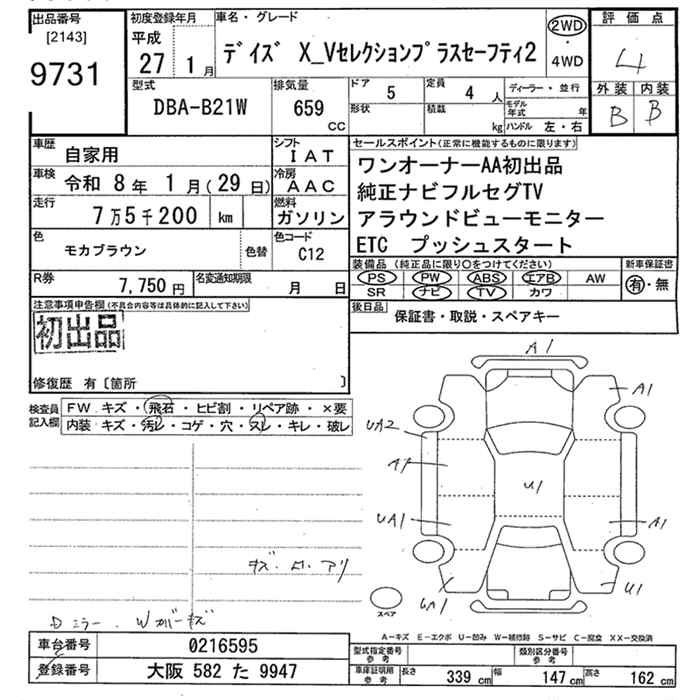 出品番号
[2143]
9731
初度登録年月
平成
27 1月
車名・グレード
デイズ X_Vセレクションプラスセーフティ2
2WD
・
4WD
評価点
4
外装 内装
B B
型式
DBA-B21W
排気量
659
CC
ドア
5
定員
4人
形状
積載
kg
ディーラー・並行
モデル年式 年
ハンドル 左・右
車歴
自家用
シフト
IAT
車検
令和 8年 1月(29日)
冷房
AAC
走行
7万5千200 km
燃料
ガソリン
色
モカブラウン
色替
色コード
C12
R券
7,750円
名変通知期限
月 日
セールスポイント(正常に機能するものに限ります)
ワンオーナーAA初出品
純正ナビフルセグTV
アラウンドビューモニター
ETC プッシュスタート
装備品(純正品に限り○をつけてください)
PS PW ABS エアB AW
SR ナビ TV カワ
新車保証書
有・無
後日品
保証書・取説・スペアキー
注意事項申告欄(不具合内容等は具体的に記入して下さい)
初出品
修復歴 有〔箇所 〕
検査員
記入欄
FW キズ・飛石・ヒビ割・リペア跡・×要
内装 キズ・汚レ・コゲ・穴・スレ・キレ・破レ
A1
A1
UA2
A1
U1
UA1
A1
UA1
U1
スペア
Dミラー・Wガバーキズ
車台番号
0216595
登録番号
大阪 582 た 9947
A-キズ E-エクボ U-凹み W-補修跡 S-サビ C-腐食 XX-交換済
型式指定番号
参考
類別区分番号
参考
車庫証明用
参考
長さ 339 cm
幅 147 cm
高さ 162 cm